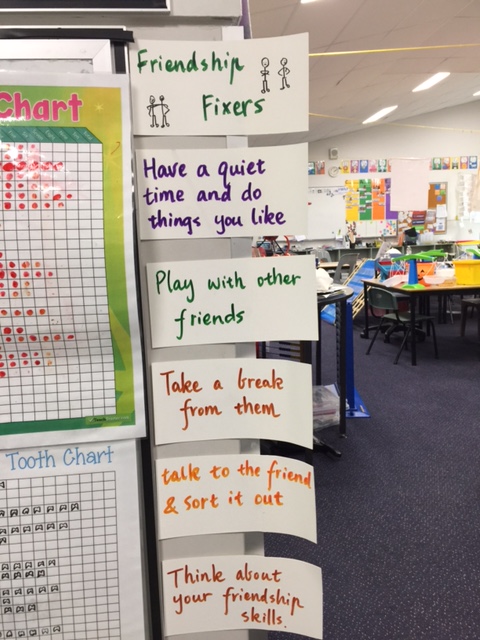 Friendship
Fixers
Have a quiet
time and do
things you like
Play with other
friends
Take a break
from them
talk to the friend
& sort it out
Think about
your friendship
skills.
Chart
Tooth Chart